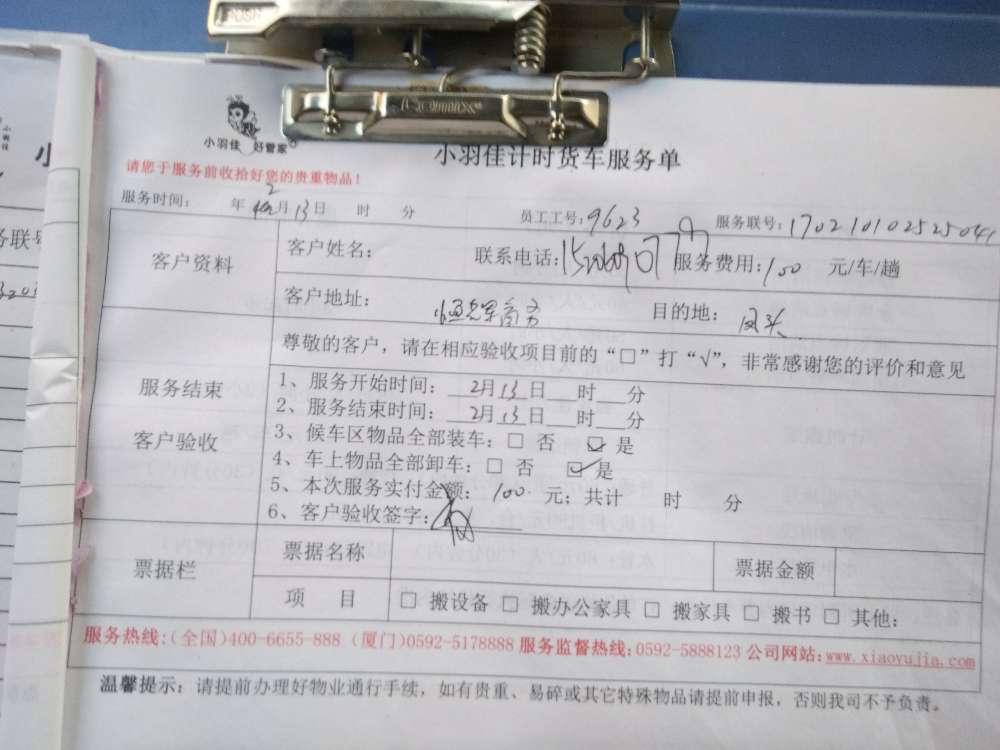 小羽佳 好管家
小羽佳计时货车服务单
请您于服务前收拾好您的贵重物品！
服务时间： 年 2月13日 时 分 员工工号：9623 服务联号：170210102525041
客户资料 客户姓名： 联系电话： 服务费用：100 元/车/趟
客户地址： 商务 目的地：
尊敬的客户，请在相应验收项目前的“□”打“√”，非常感谢您的评价和意见
服务结束
客户验收
1、服务开始时间： 2月13日 时 分
2、服务结束时间： 2月13日 时 分
3、候车区物品全部装车：□ 否 ☑ 是
4、车上物品全部卸车：□ 否 ☑ 是
5、本次服务实付金额： 100 元；共计 时 分
6、客户验收签字：
票据栏 票据名称 票据金额
项 目 □ 搬设备 □ 搬办公家具 □ 搬家具 □ 搬书 □ 其他：
服务热线：(全国)400-6655-888 (厦门)0592-5178888 服务监督热线：0592-5888123 公司网站：www.xiaoyujia.com
温馨提示：请提前办理好物业通行手续，如有贵重、易碎或其它特殊物品请提前申报，否则我司不予负责。